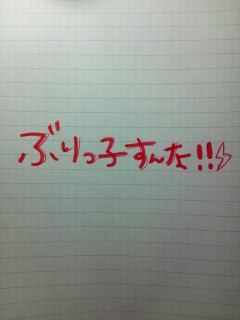 ぶりっ子すんな!!⚡